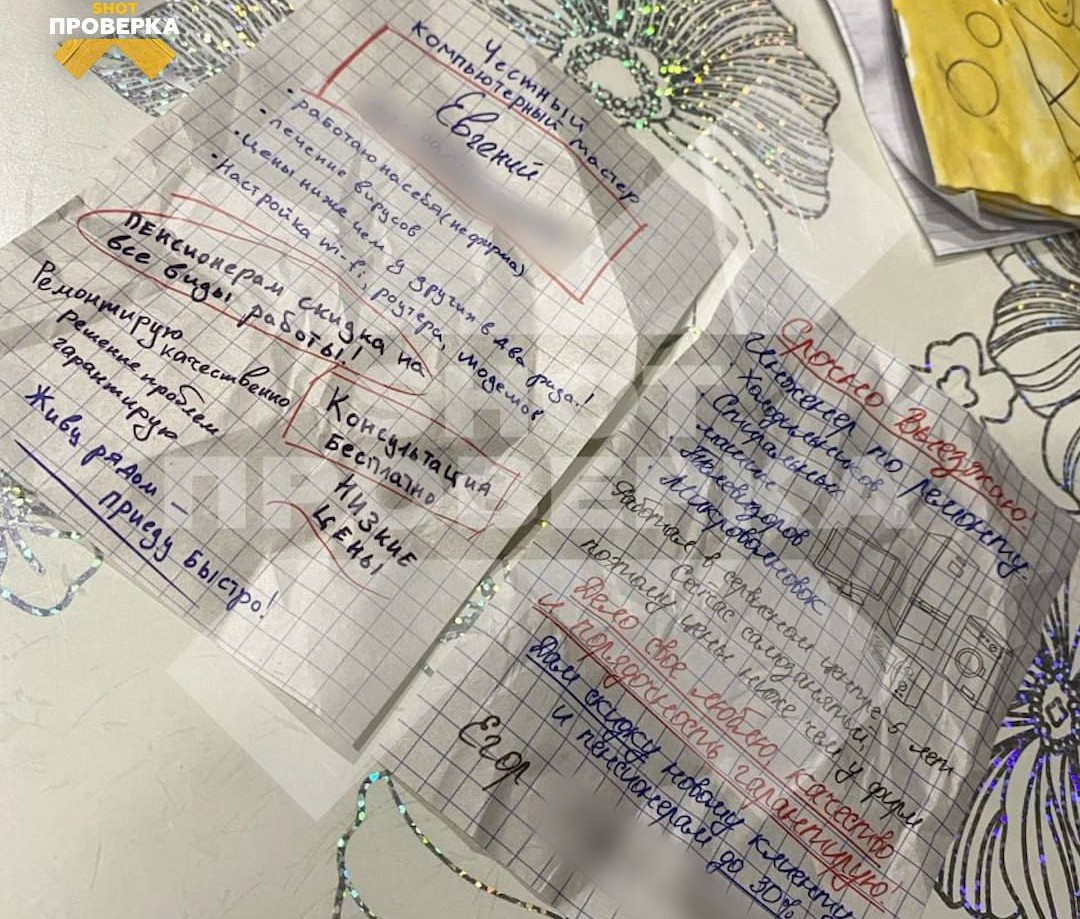 SHOT
ПРОВЕРКА
Честный
компьютерный мастер
Евгений
• работаю на себя (не фирма)
• лечение вирусов
• Цены ниже чем у других в два раза!
• Настройка wi-fi, роутера, модемов
Пенсионерам скидка на
все виды работы!
Ремонтирую качественно
Решение проблем
гарантирую
Консультация
Бесплатно
НИЗКИЕ
ЦЕНЫ
Живу рядом –
приеду быстро!
Срочно Выезжаю.
Инженер по ремонту.
Холодильников
• Стиральных
машин
• Телевизоров
• Микроволновок
Работал в сервисном центре 6 лет
Сейчас самозанятый,
поэтому цены ниже чем у фирм
Дело свое люблю качество
и порядочность гарантирую.
Дам скидку новому клиенту
и пенсионерам до 30%
Егор
SHOT
ПРОВЕРКА